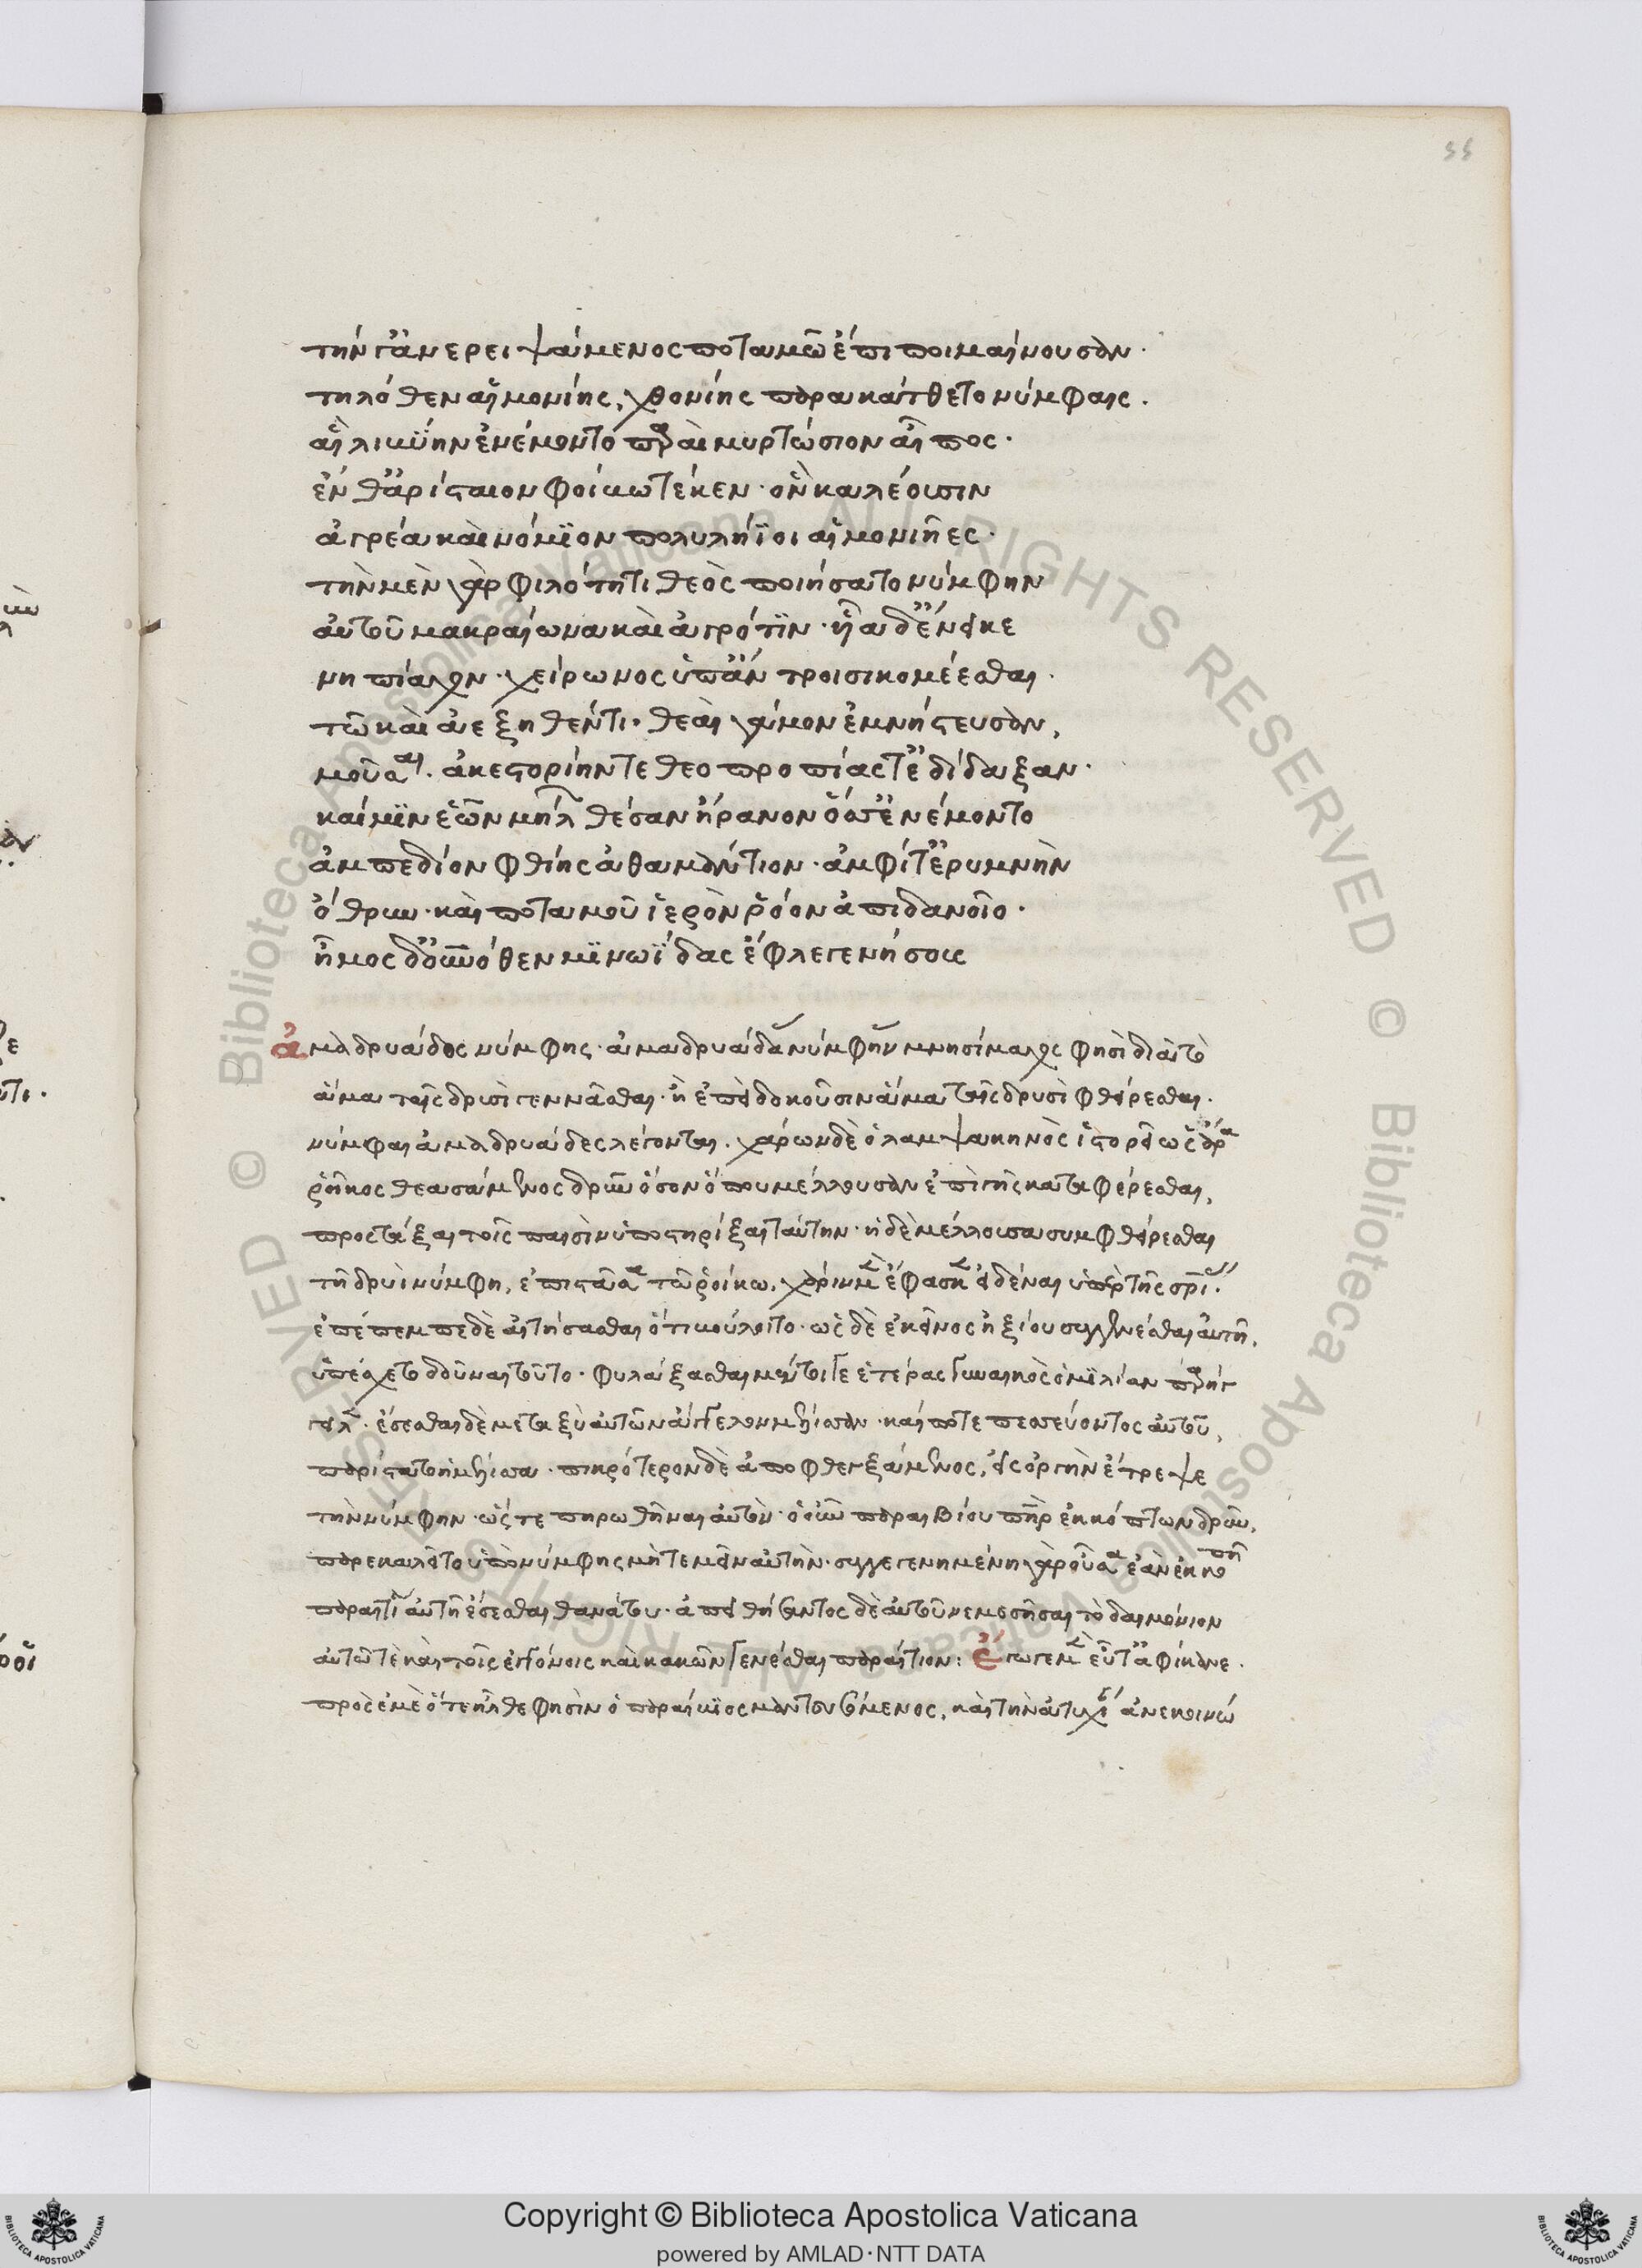 55
τήν γ' ἀνερειψάμενος ποταμῶ ἔπι ποιμαίνουσαν·
τηλόθεν αἱμονίης, χθονίης παρακάτθετο νύμφαις.
αἳ λιβύην ἐνέμοντο παραὶ μυρτώσιον αἶπος·
ἔνθ' ἀρίσταιον φοίβω τέκεν· ὃν καλέουσιν
ἀγρέα καὶ νόμιον πολυλήϊοι αἱμονιῆες·
τὴν μὲν γὰρ φιλότητι θεὸς ποιήσατο νύμφην
αὐτοῦ μακραίωνα καὶ ἀγρότιν· υἷα δ' ἔνεικε
νηπίαχον· χείρωνος ὑπ' ἄντροισι κομέεσθαι·
τῶ καὶ ἀεξηθέντι· θεαὶ γάμον ἐμνήστευσαν,
μοῦσαι· ἀκεστορίην τε θεοπροπίας τ' ἐδίδαξαν·
καί μιν ἑῶν μήλων θέσαν ἤρανον ὅσσ' ἐνέμοντο
ἀμπεδίον φθίης ἀθαμάντιον· ἀμφί τ' ἐρυμνὴν
ὄθρυν· καὶ ποταμοῦ ἱερὸν ῥόον ἀπιδανοῖο·
ἦμος δ' οὐρανόθεν μινωΐδας ἔφλεγε νήσους
ἀμαδρυάδος νύμφης· ἀμαδρυάδα νύμφην μνησίμαχος φησὶ διὰ τὸ
ἅμα ταῖς δρυσὶ γεννᾶσθαι· ἢ ἐπεὶ δοκοῦσιν ἅμα ταῖς δρυσὶ φθείρεσθαι·
νύμφαι ἀμαδρυάδες λέγονται· χάρων δὲ ὁ λαμψακηνὸς ἱστορεῖ ὡς ἄρα
ῥοῖκος θεασάμενος δρῦν ὅσον ὅπου μέλλουσαν ἐπὶ γῆς καταφέρεσθαι,
προστάξαι τοῖς παισὶν ὑποστηρίξαι ταύτην· ἡ δὲ μέλλουσα συμφθείρεσθαι
τῆ δρυὶ νύμφη, ἐπιστᾶσα τῶ ῥοίκω, χάριν μὲν ἔφασκεν εἰδέναι ὑπὲρ τῆς σωτηρίας·
ἐπέπεμπε δὲ αἰτήσασθαι ὅτι βούλοιτο· ὡς δὲ ἐκεῖνος ἠξίου συγγενέσθαι αὐτῆ,
ὑπέσχετο δοῦναι τοῦτο· φυλάξασθαι μέντοι γε ἑτέρας γυναικὸς ὁμιλίαν παρήγ
γειλεν· ἔσεσθαι δὲ μεταξὺ αὐτῶν ἄγγελον μέλισσαν· καί ποτε πεσσεύοντος αὐτοῦ,
παρίπτατο ἡ μέλισσα· πικρότερον δὲ ἀποφθεγξάμενος, εἰς ὀργὴν ἔτρεψε
τὴν νύμφην· ὥστε πηρωθῆναι αὐτόν· ὁ οὖν παραιβίου πατὴρ ἐκκόπτων δρῦν,
παρεκαλεῖτο ὑπὸ νύμφης μὴ τεμεῖν αὐτὴν· συγγεγενημένη γὰρ οὖσα ἐὰν ἐκκοπῆ
παραιτία αὐτῆ ἔσεσθαι θανάτου· ἀπειθήσαντος δὲ αὐτοῦ νεμεσῆσαι τὸ δαιμόνιον
αὐτῶ τε καὶ τοῖς ἐγγόνοις καὶ κακῶν γενέσθαι παραίτιον: Ἔγωγε μὲν εὖτ' ἀφίκανε·
πρὸς ἐμὲ ὅτε ἦλθε φησὶν ὁ παραίβιος μαντευόμενος, καὶ τὴν ἀτυχίαν ἀνεκοινώ
Copyright © Biblioteca Apostolica Vaticana
powered by AMLAD·NTT DATA